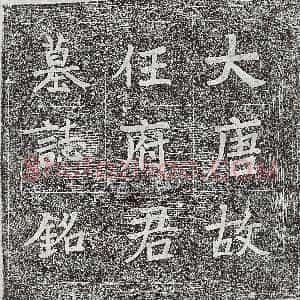 大唐故
任府君
墓誌銘